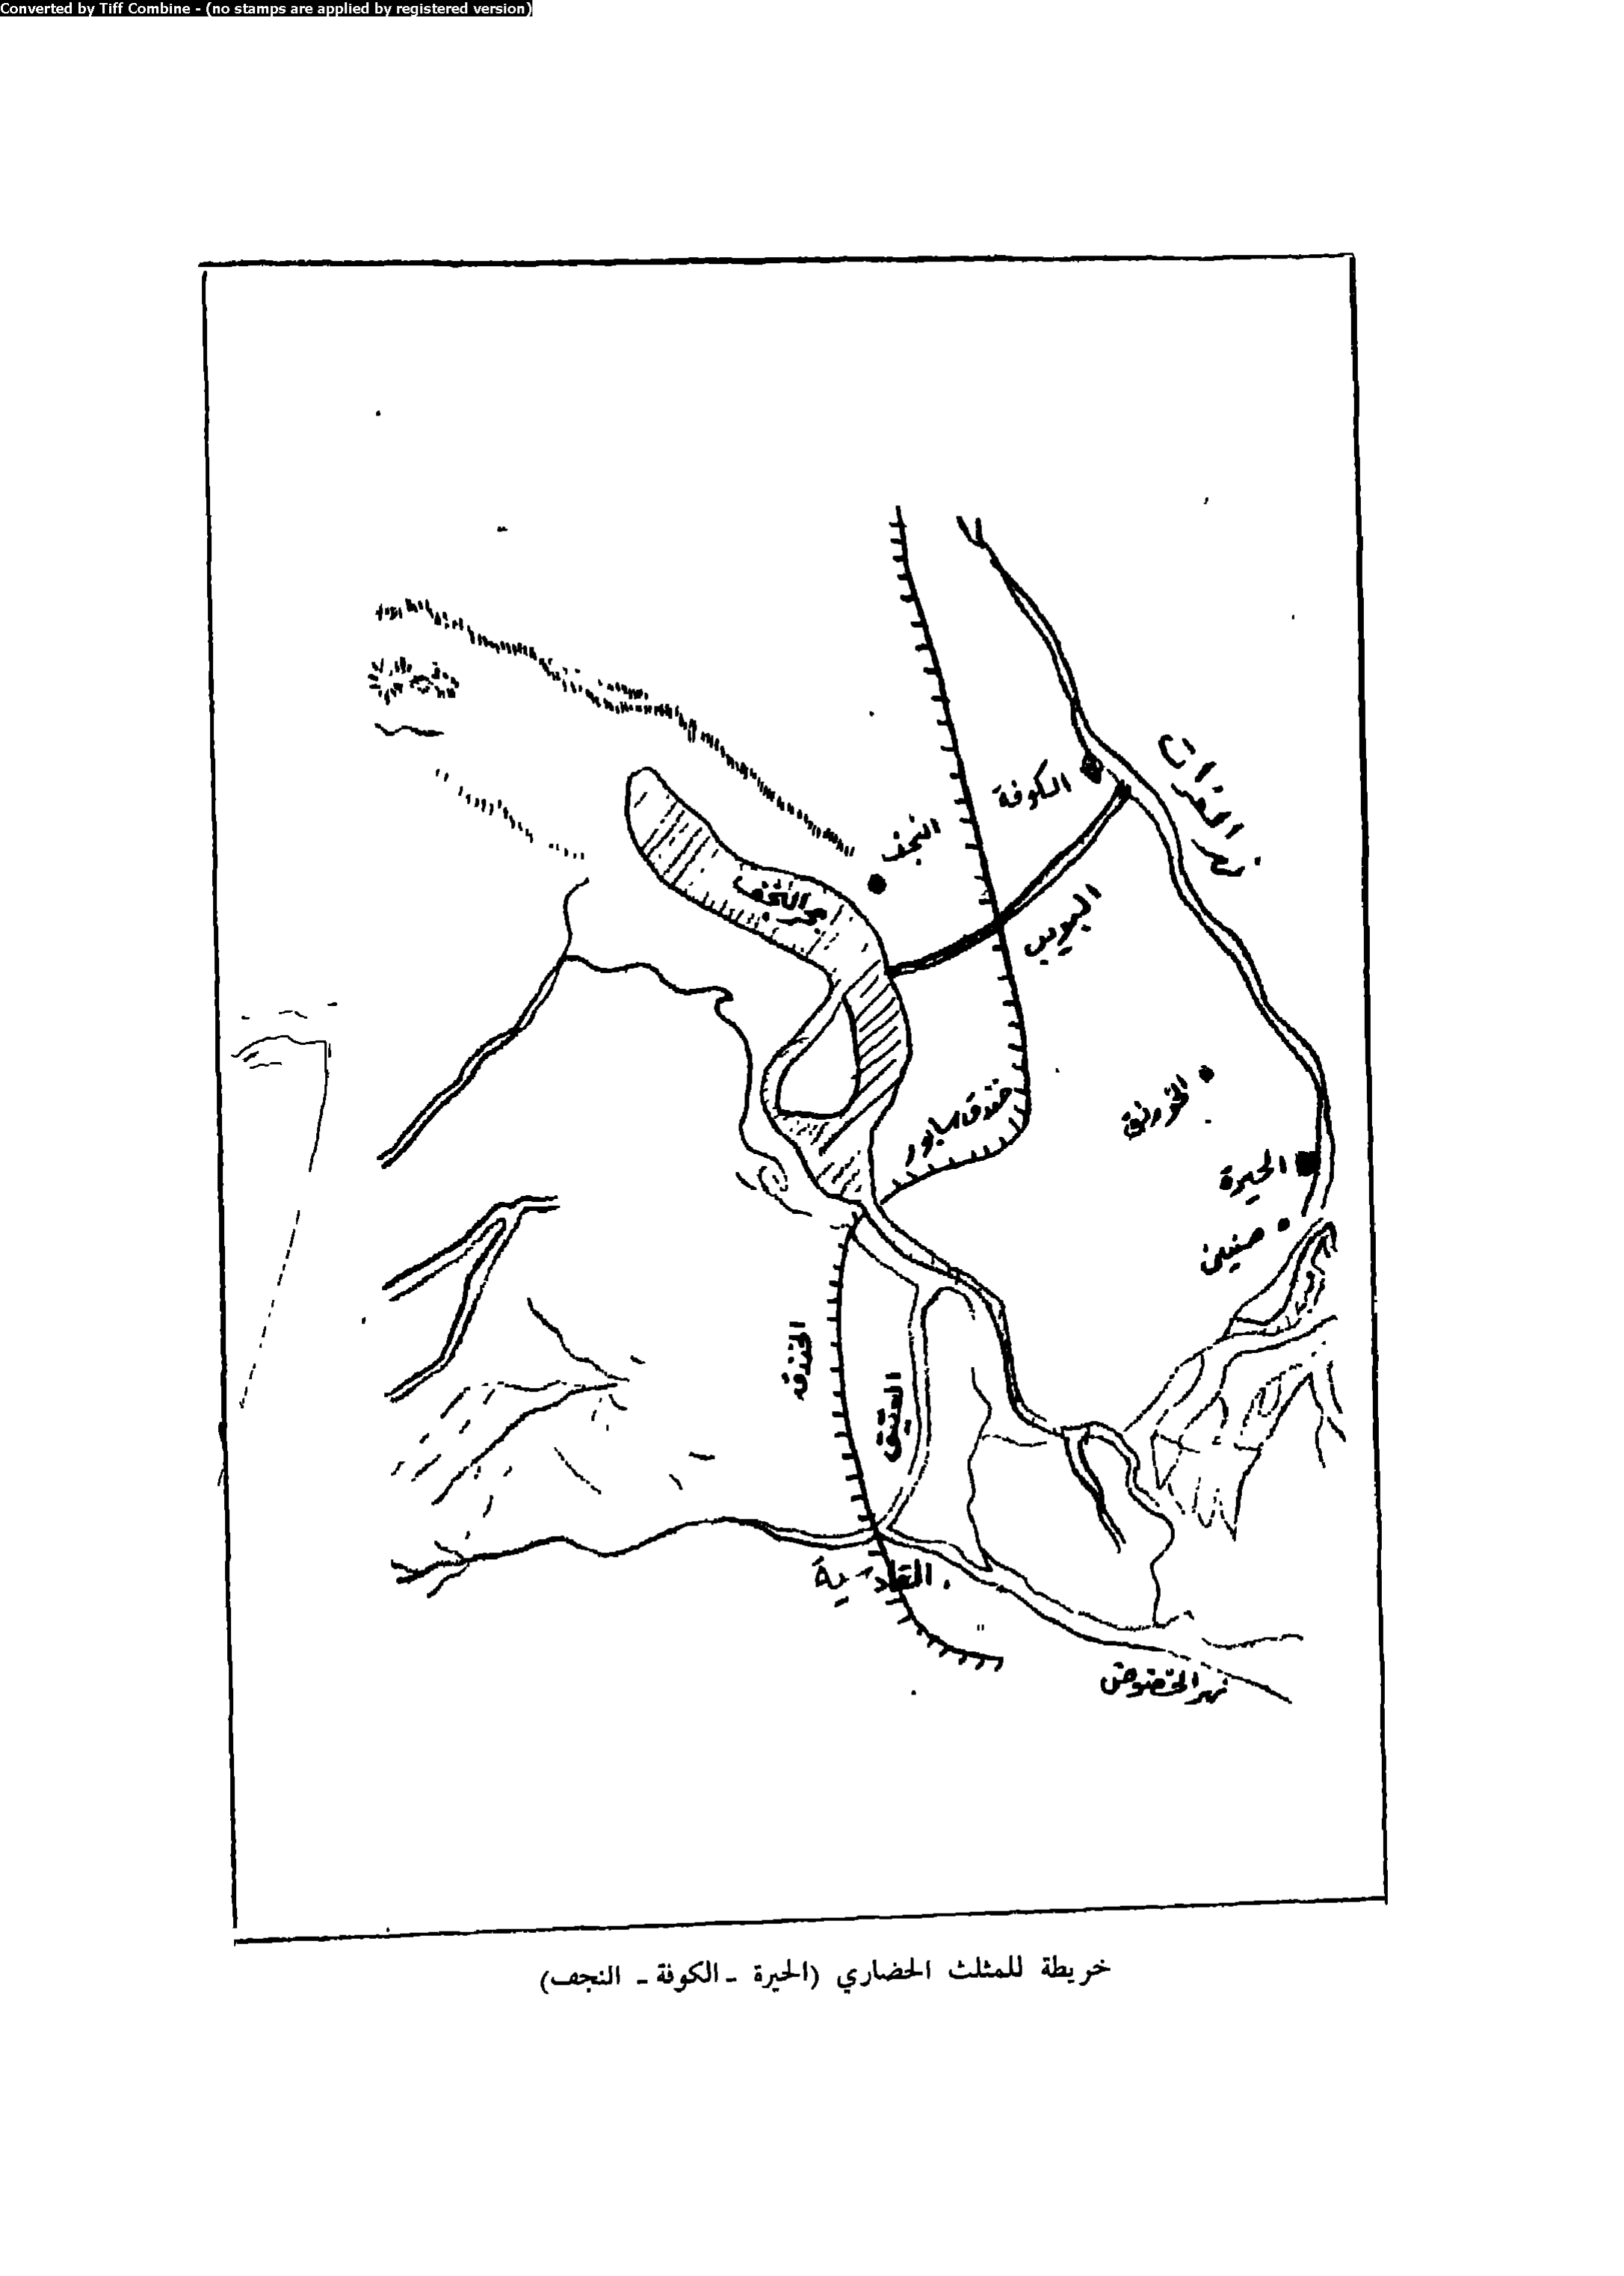 Converted by Tiff Combine - (no stamps are applied by registered version)
نهر الفرات
الكوفة
النجف
بحر النجف
خندق سابور
الخورنق
الحيرة
صنين
الخندق
العتيق
القادسية
خريطة للمثلث الحضاري (الحيرة - الكوفة - النجف)